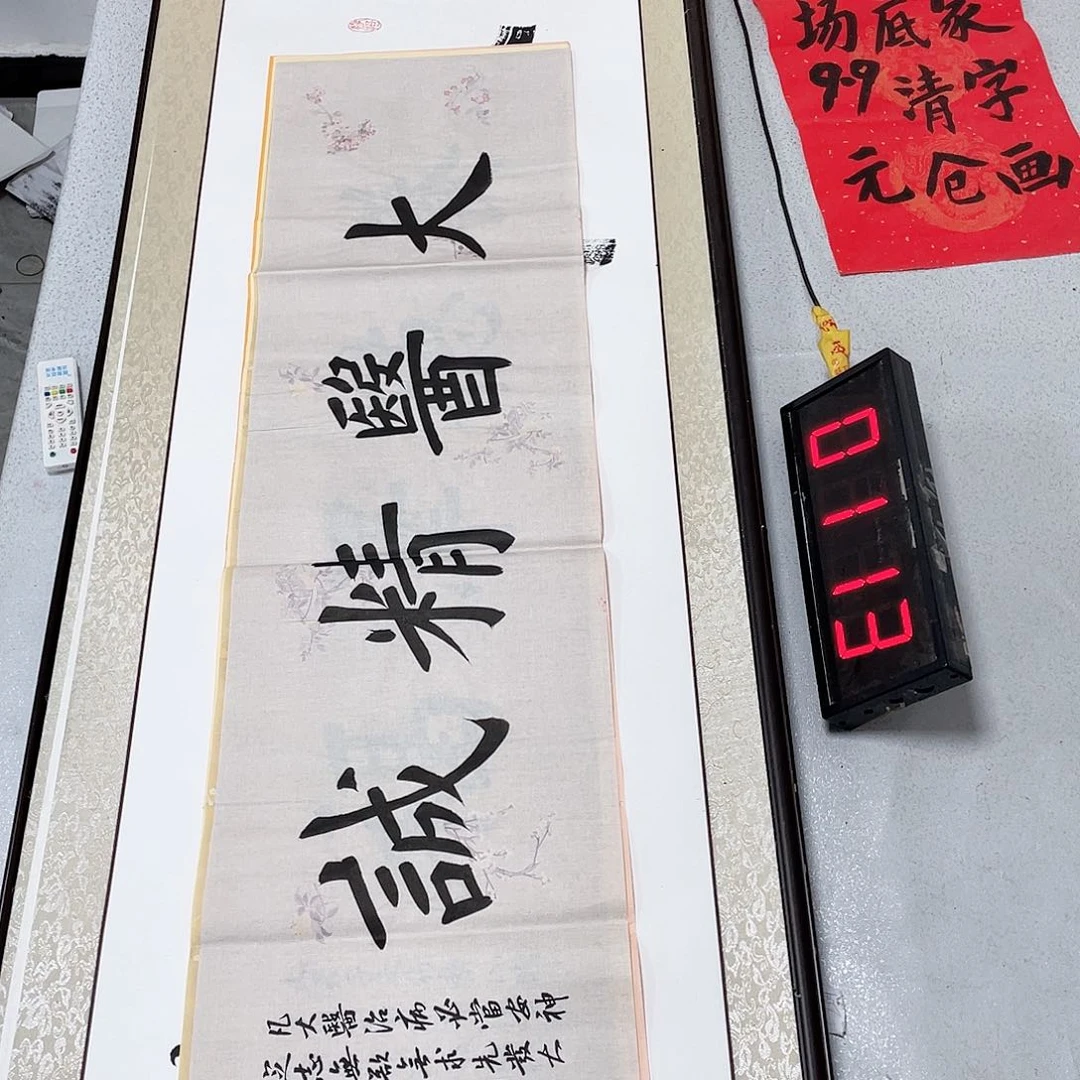 大醫精誠
凡大醫治病必當安神
定志無欲無求先發大
家字画
底清仓
场9.9元
0113